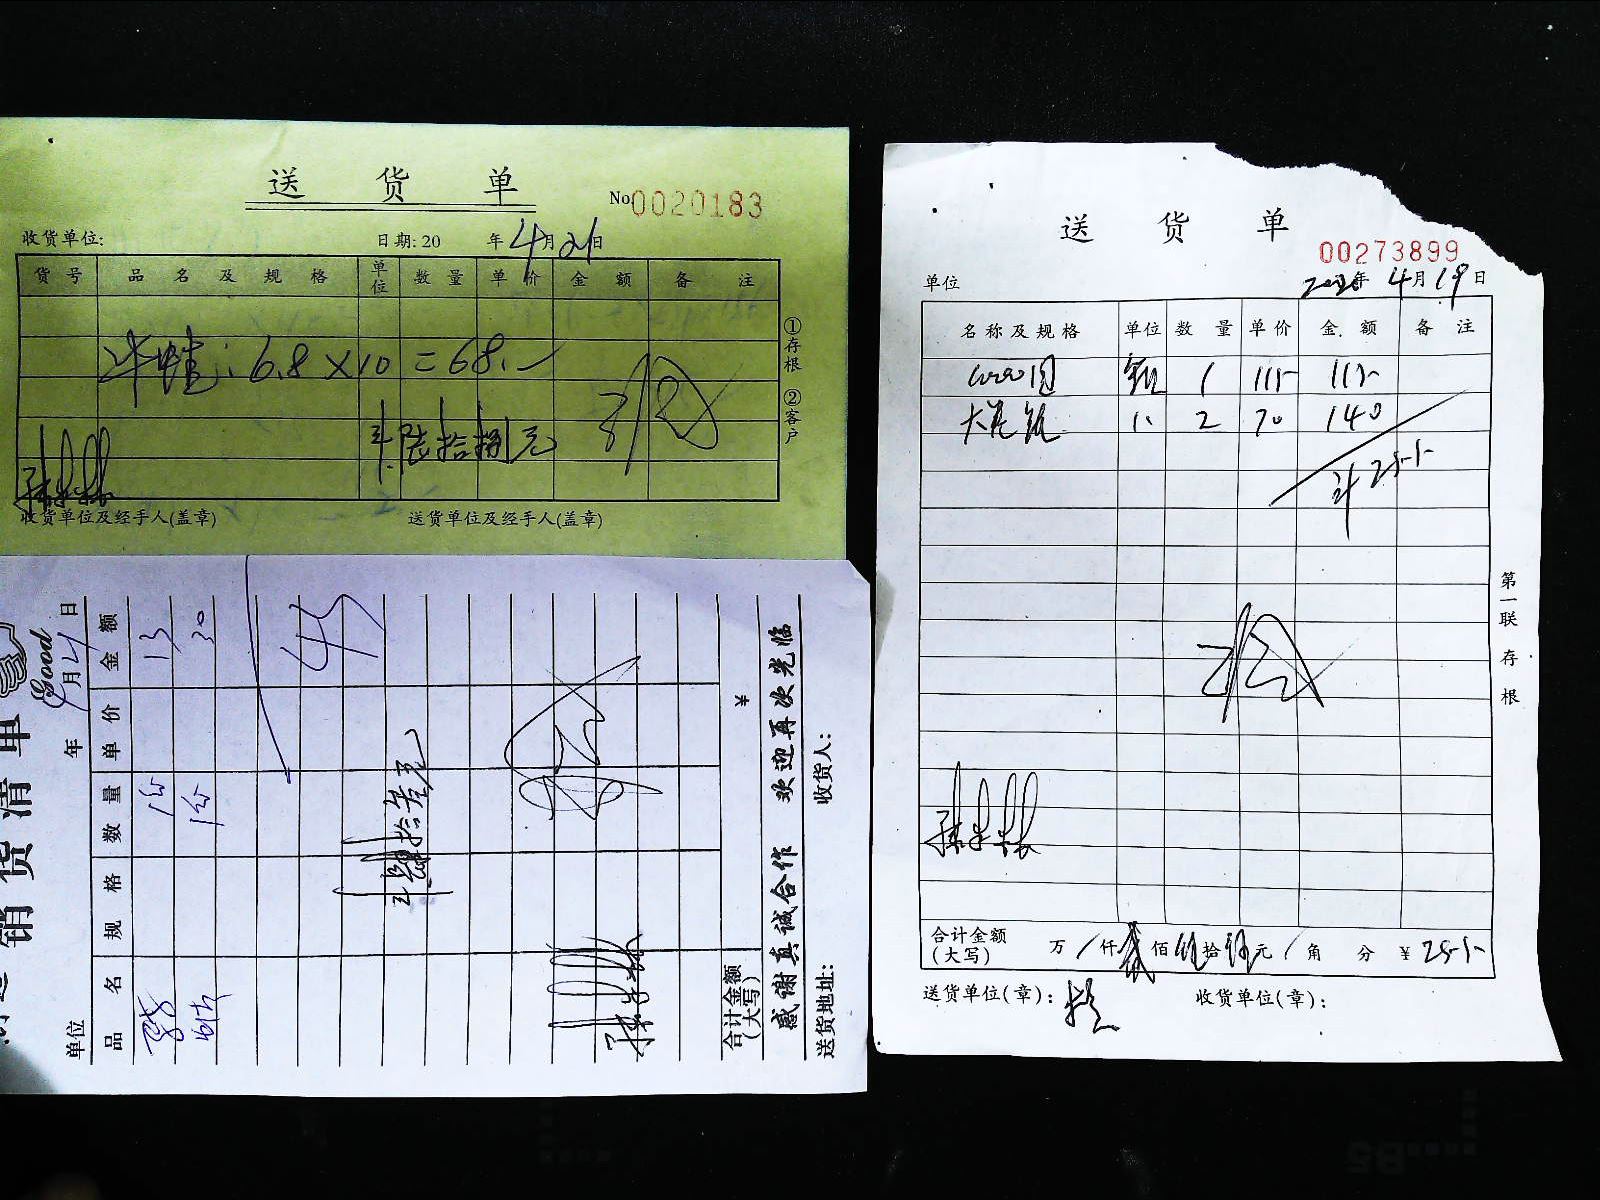 送 货 单
No 0020183
收货单位: 日期: 20 年 4 月 21 日
货号 品名及规格 单位 数量 单价 金额 备注
牛蛙: 6.8 × 10 = 68.-
计陆拾捌元
①存根 ②客户
收货单位及经手人(盖章) 送货单位及经手人(盖章)
销货清单
Good
单位 年 4 月 21 日
品名 规格 数量 单价 金额
1份 15
1份 30
45
计肆拾伍元
合计金额(大写) ¥
感谢真诚合作 欢迎再次光临
送货地址: 收货人:
送 货 单
00273899
单位 年 4 月 19 日
名称及规格 单位 数量 单价 金额 备注
1 115 115-
2 70 140
计 255.-
第一联存根
合计金额(大写) 万 / 仟 贰 佰 伍 拾 伍 元 / 角 分 ¥ 255.-
送货单位(章): 收货单位(章):